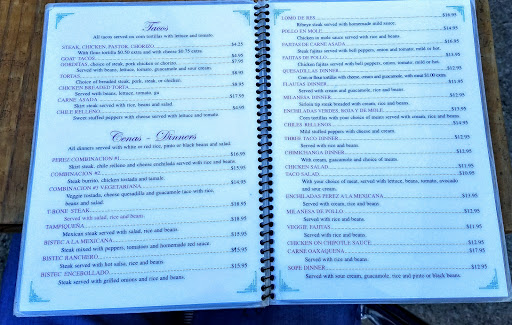 Tacos
All tacos served on corn tortillas with lettuce and tomato.
STEAK, CHICKEN, PASTOR, CHORIZO $4.25
With flour tortilla $0.50 extra and with cheese $0.75 extra
GOAT TACOS $4.95
GORDITAS, choice of steak, pork chicken or chorizo $7.95
Served with beans, lettuce, tomato, guacamole and sour cream.
TORTAS
Choice of breaded steak, pork, steak, or chicken.
CHICKEN BREADED TORTA $8.95
Served with beans, lettuce, tomato,
CARNE ASADA $15.95
Skirt steak served with rice, beans and salad.
CHILE RELLENO $4.95
Sweet stuffed peppers with cheese served with lettuce and tomato.
Cenas - Dinners
All dinners served with white or red rice, pinto or black beans and salad.
PEREZ COMBINACION #1 $16.95
Skirt steak, chile relleno and cheese enchilada served with rice and beans.
COMBINACION #2 $15.95
Steak burrito, chicken tostada and tamale.
COMBINACION #3 VEGETARIANA $14.95
Veggie tostada, cheese quesadilla and guacamole taco with rice,
beans and salad.
T-BONE STEAK $18.95
Served with salad, rice and beans.
TAMPIQUEÑA $18.95
Mexican steak served with salad, rice and beans.
BISTEC A LA MEXICANA $15.95
Steak mixed with peppers, tomatoes and homemade red sauce.
BISTEC RANCHERO $15.95
Steak served with hot salsa, rice and beans.
BISTEC ENCEBOLLADO $15.95
Steak served with grilled onions and rice and beans.
LOMO DE RES $16.95
Ribeye steak served with homemade mild sauce.
POLLO EN MOLE $14.95
Chicken in mole sauce served with rice and beans.
FAJITAS DE CARNE ASADA $16.95
Steak fajitas served with bell peppers, onion and tomato, mild or hot.
FAJITAS DE POLLO $15.95
Chicken fajitas served with bell peppers, onion and tomato, mild or hot.
QUESADILLAS DINNER $12.95
Corn or flour tortillas with cheese, cream and guacamole, with meat $1.00 extra
FLAUTAS DINNER $11.95
Served with cream and guacamole, rice and beans
MILANESA DINNER $12.95
Sirloin tip steak breaded with cream, rice and beans.
ENCHILADAS VERDES, ROJA Y DE MOLE $13.95
Corn tortillas with your choice of meats served with cream, rice and beans.
CHILES RELLENOS $14.95
Mild stuffed peppers with cheese and cream.
THREE TACO DINNER $12.95
Served with rice and beans.
CHIMICHANGA DINNER $12.95
With cream, guacamole and choice of meats.
CHICKEN SALAD $11.95
TACO SALAD $10.95
With your choice of meat, served with lettuce, beans, tomato, avocado
and sour cream.
ENCHILADAS PEREZ A LA MEXICANA $13.95
Served with cream, rice and beans.
MILANESA DE POLLO $12.95
Served with rice and beans.
VEGGIE FAJITAS $11.95
Served with rice and beans.
CHICKEN ON CHIPOTLE SAUCE $12.95
CARNE OAXAQUENA $17.95
Served with rice and beans.
SOPE DINNER $12.95
Served with sour cream, guacamole, rice and pinto or black beans